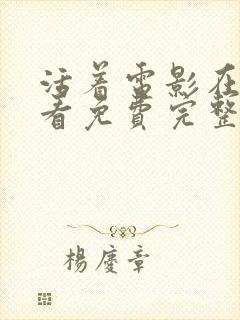 活着雷影在
看免费完整
楊慶章